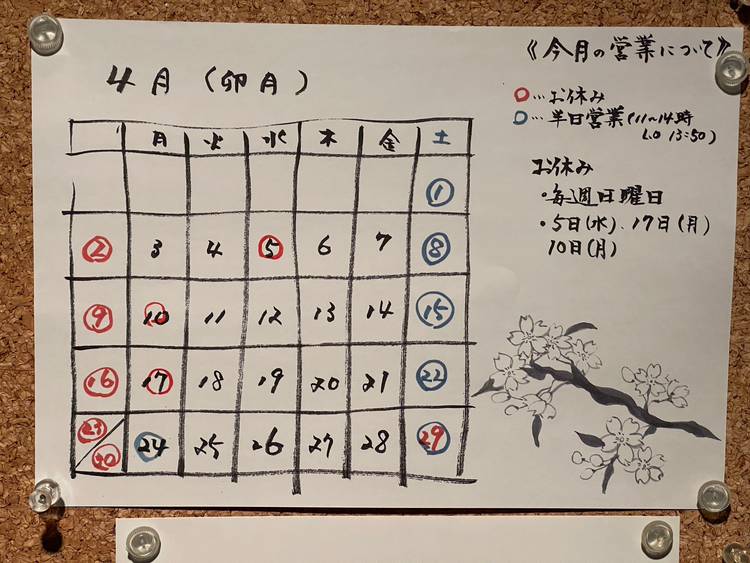 4月（卯月）
月 火 水 木 金 土
1
2 3 4 5 6 7 8
9 10 11 12 13 14 15
16 17 18 19 20 21 22
23/30 24 25 26 27 28 29
《今月の営業について》
○…お休み
○…半日営業(11〜14時
L.O 13:50)
お休み
・毎週日曜日
・5日(水)、17日(月)
10日(月)